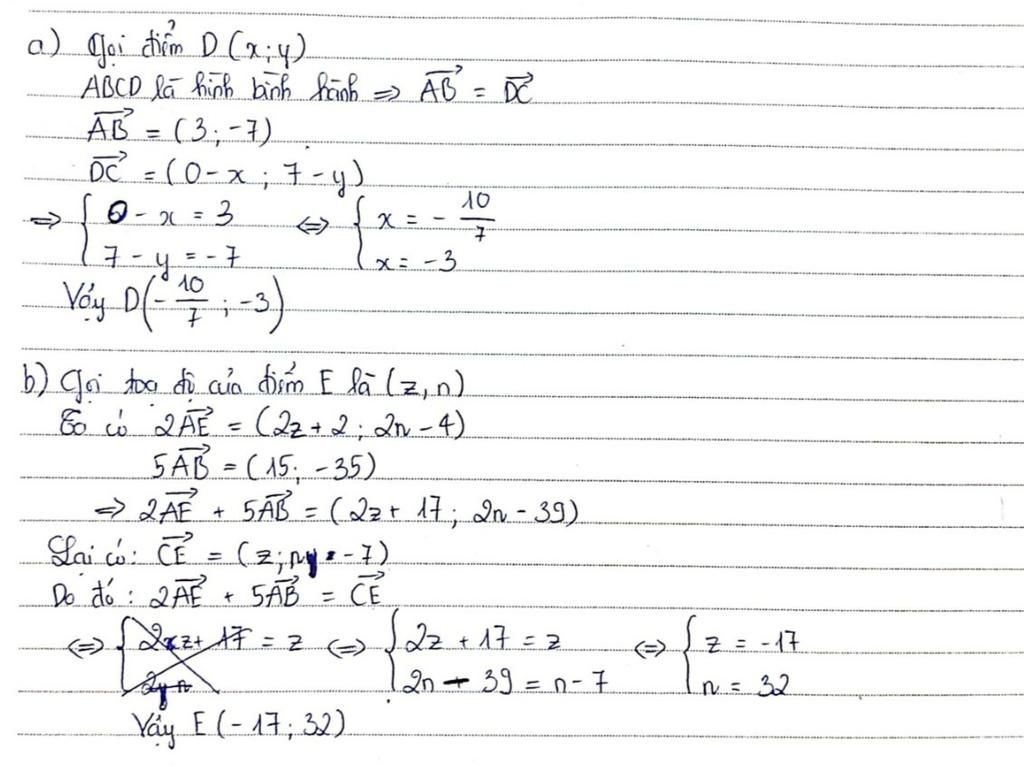 a) Gọi điểm D (x; y)
ABCD là hình bình hành ⇒ \overrightarrow{AB} = \overrightarrow{DC}
\overrightarrow{AB} = (3; -7)
\overrightarrow{DC} = (0 - x ; 7 - y)
⇒ { 0 - x = 3 ; 7 - y = -7 ⇔ { x = - 10/7 ; x = -3
Vậy D(- 10/7 ; -3)
b) Gọi toạ độ của điểm E là (z, n)
Có có 2\overrightarrow{AE} = (2z + 2 ; 2n - 4)
5\overrightarrow{AB} = (15; -35)
⇒ 2\overrightarrow{AE} + 5\overrightarrow{AB} = (2z + 17 ; 2n - 39)
Lại có: \overrightarrow{CE} = (z; n - 7)
Do đó : 2\overrightarrow{AE} + 5\overrightarrow{AB} = \overrightarrow{CE}
⇔ { 2z + 17 = z ; 2y n ⇔ { 2z + 17 = z ; 2n - 39 = n - 7 ⇔ { z = -17 ; n = 32
Vậy E (-17; 32)